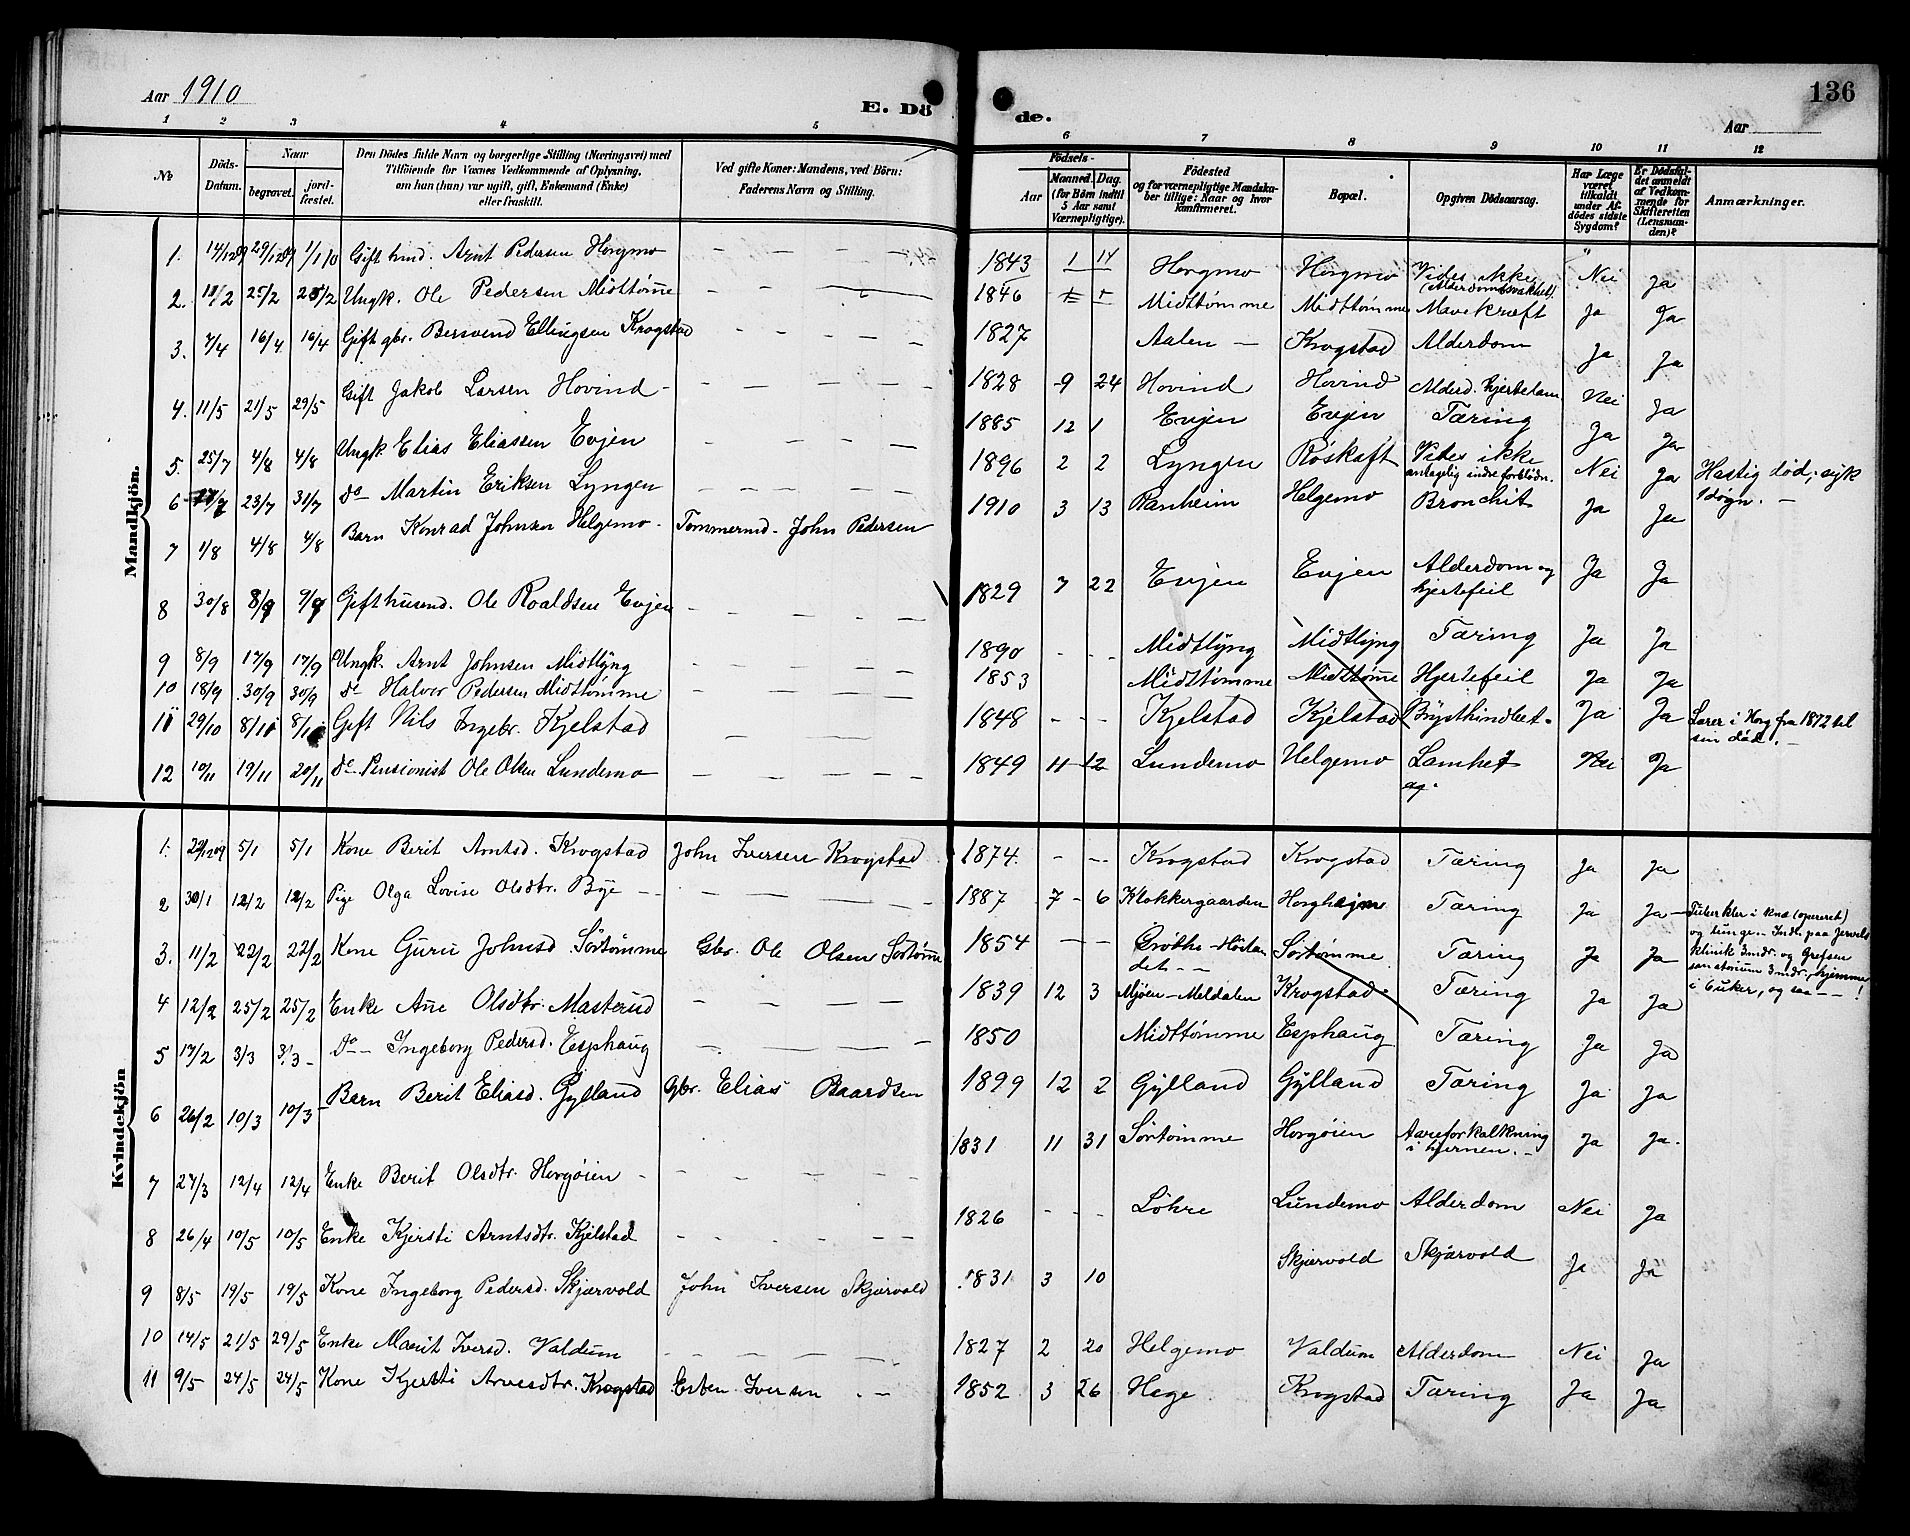 Aar 1910
E. Dö
de.
136
Aar
1 2 3 4 5 6 7 8 9 10 11 12
No
Döds-Datum.
Naar
begravet.
jord-fæstet.
Den Dödes fulde Navn og borgerlige Stilling (Næringsvei) med
Tilföiende for Voxnes Vedkommende af Oplysning,
om hun (han) var ugift, gift, Enkemand (Enke)
eller fraskilt.
Ved gifte Koner: Mandens, ved Börn:
Faderens Navn og Stilling.
Födsels-
Aar
Maaned. Dag.
(for Börn indtil
5 Aar samt
Værnepligtige).
Födested
og for værnepligtige Mandska-
ber tillige: Naar og hvor
konfirmeret.
Bopæl.
Opgiven Dödsaarsag.
Har Læge
været
tilkaldt
under Af-
dödes sidste
Sygdom?
Er Dödsfal-
det anmeldt
af Vedkom-
mende for
Skifteretten
(Lensman-
den)?
Anmærkninger.
Mandkjön.
1. 14/12 09 29/12 09 1/1 10 Gift hmd. Arnt Pedersen Horgmo 1843 1 14 Horgmo Horgmo Vides ikke (Alderdomssvakhet). Nei Ja
2. 18/2 25/2 25/2 Ungk. Ole Pedersen Midttømme 1846 Midttømme Midttømme Mavekræft Ja Ja
3. 7/4 16/4 16/4 Gift gbr. Bersvend Ellingsen Krogstad 1827 Aalen Krogstad Alderdom Ja Ja
4. 11/5 21/5 29/5 Gift Jakob Larsen Hovind 1828 9 24 Hovind Hovind Alderd. hjertelam Nei Ja
5. 25/7 4/8 4/8 Ungk Elias Eliassen Evjen 1885 12 1 Evjen Evjen Tæring Ja Ja
6 23/7 31/7 do Martin Eriksen Lyngen 1896 2 2 Lyngen Røskaft Vides ikke antagelig indre forblødn. Nei Ja Hastig død; syk 1 døgn.
7 1/8 4/8 4/8 Barn Konrad Johnsen Helgemo Tømmermd. John Pedersen 1910 3 13 Ranheim Helgemo Bronchit Ja Ja
8 30/8 8/9 9/9 Gift husmd. Ole Roaldsen Evjen 1829 7 22 Evjen Evjen Alderdom og hjertefeil Ja Ja
9 8/9 17/9 17/9 Ungk. Arnt Johnsen Midtlyng 1890 Midtlyng Midtlyng Tæring Ja Ja
10 18/9 30/9 30/9 do Halvor Pedersen Midttømme 1853 Midttømme Midttømme Hjertefeil Ja Ja
11 29/10 8/11 8/11 Gift Nils Ingebr. Kjelstad 1848 Kjelstad Kjelstad Brysthindbet. Ja Ja Lærer i Horg fra 1872 til sin død.
12 10/11 19/11 20/11 do Pensionist Ole Olsen Lundemo 1849 11 12 Lundemo Helgemo Lamhet Nei Ja
Kvindekjön
1. 5/1 5/1 Kone Berit Arntsd. Krogstad John Iversen Krogstad 1874 Krogstad Krogstad Tæring Ja Ja
2 30/1 12/2 12/2 Pige Olga Lovise Olsdtr. Bye 1887 7 6 Klokkergaarden Horgheim Tæring Ja Ja Tuberkler i knæ (opereret) og lunge. Indl. paa Jervels klinik 3 mdr. og Grefsen sanatorium 3 mdr., hjemme i 6 uker, og saa !
3. 11/2 22/2 22/2 Kone Guru Johnsd. Sørtømme Gbr. Ole Olsen Sørtømme 1854 Sørtømme Tæring Ja Ja
4 12/2 25/2 25/2 Enke Ane Olsdtr. Masterud 1839 12 3 Mjøen - Meldalen Krogstad Tæring Ja Ja
5 17/2 3/3 3/3 do Ingeborg Pedersd. Esphaug 1850 Midttømme Esphaug Tæring Ja Ja
6 26/2 10/3 10/3 Barn Berit Eliasd. Gylland Gbr. Elias Baardsen 1899 12 2 Gylland Gylland Tæring Ja Ja
7 27/3 12/4 12/4 Enke Berit Olsdtr. Horgøien 1831 11 31 Sørtømme Horgøien Aareforkalkning i hjernen. Ja Ja.
8 26/4 10/5 10/5 Enke Kjersti Arntsdtr. Kjelstad 1826 Løhre Lundemo Alderdom Nei Ja
9 8/5 19/5 19/5 Kone Ingeborg Pedersd. Skjærvold John Iversen Skjærvold 1831 3 10 Skjærvold Skjærvold Ja Ja
10 14/5 21/5 29/5 Enke Marit Iversd. Valdum 1827 2 20 Helgemo Valdum Alderdom Nei Ja
11 9/5 24/5 24/5 Kone Kjersti Arvesdtr. Krogstad Esten Iversen 1852 3 26 Hage Krogstad Tæring Ja Ja